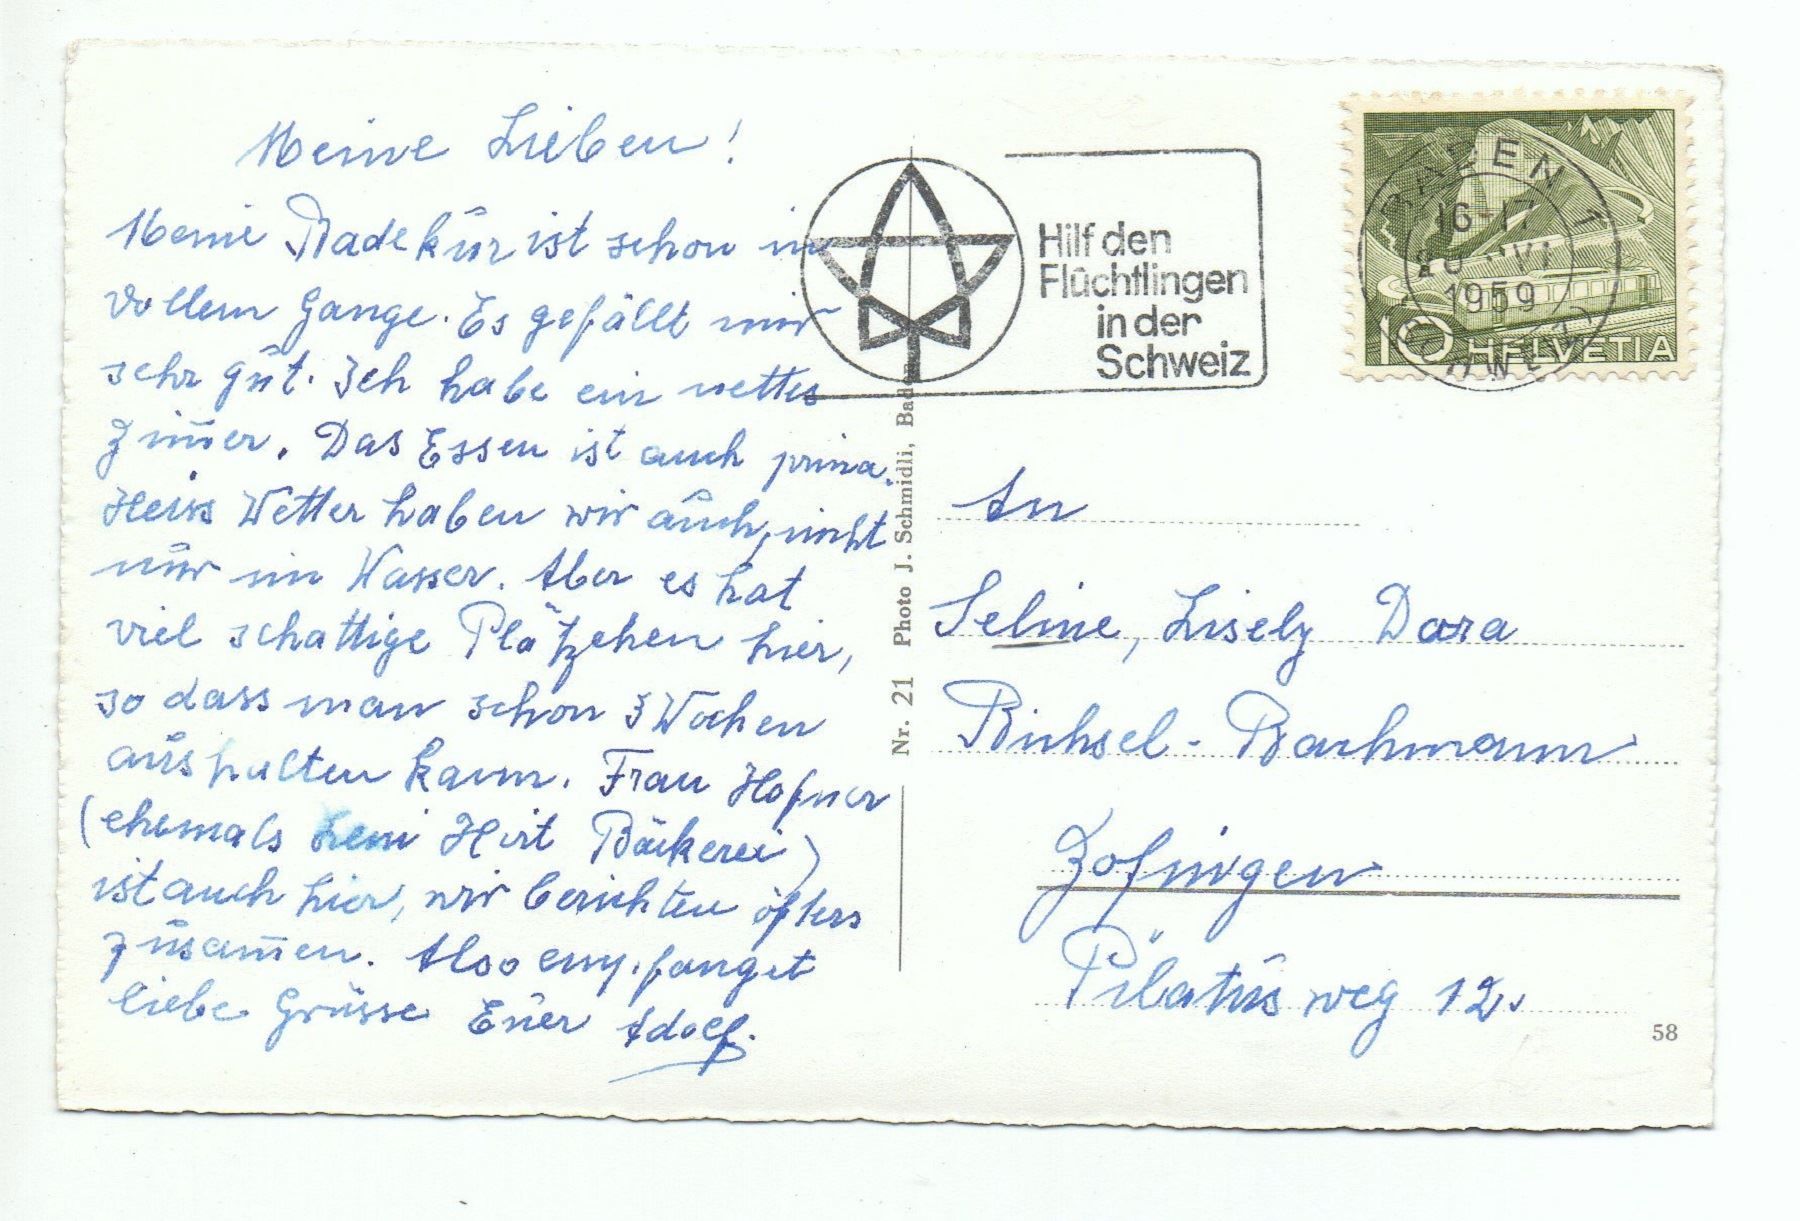 Meine Lieben!
Meine Badekur ist schon in
vollem Gange. Es gefällt mir
sehr gut. Ich habe ein nettes
Zim̅er. Das Essen ist auch prima.
Heiss Wetter haben wir auch, nicht
nur im Wasser. Aber es hat
viel schattige Plätzchen hier,
so dass man schon 3 Wochen
aushalten kann. Frau Hofner
(ehemals Leni Hirt Bäckerei)
ist auch hier, wir berichten öfters
zusam̅en. Also empfanget
liebe Grüsse Euer Adolf.
Hilf den
Flüchtlingen
in der
Schweiz
BADEN 1
16-17
VI
1959
10 HELVETIA
Nr. 21 Photo J. Schmidli, Baden
An
Seline, Lisely Dora
Bichsel-Bachmann
Zofingen
Pilatusweg 12.
58